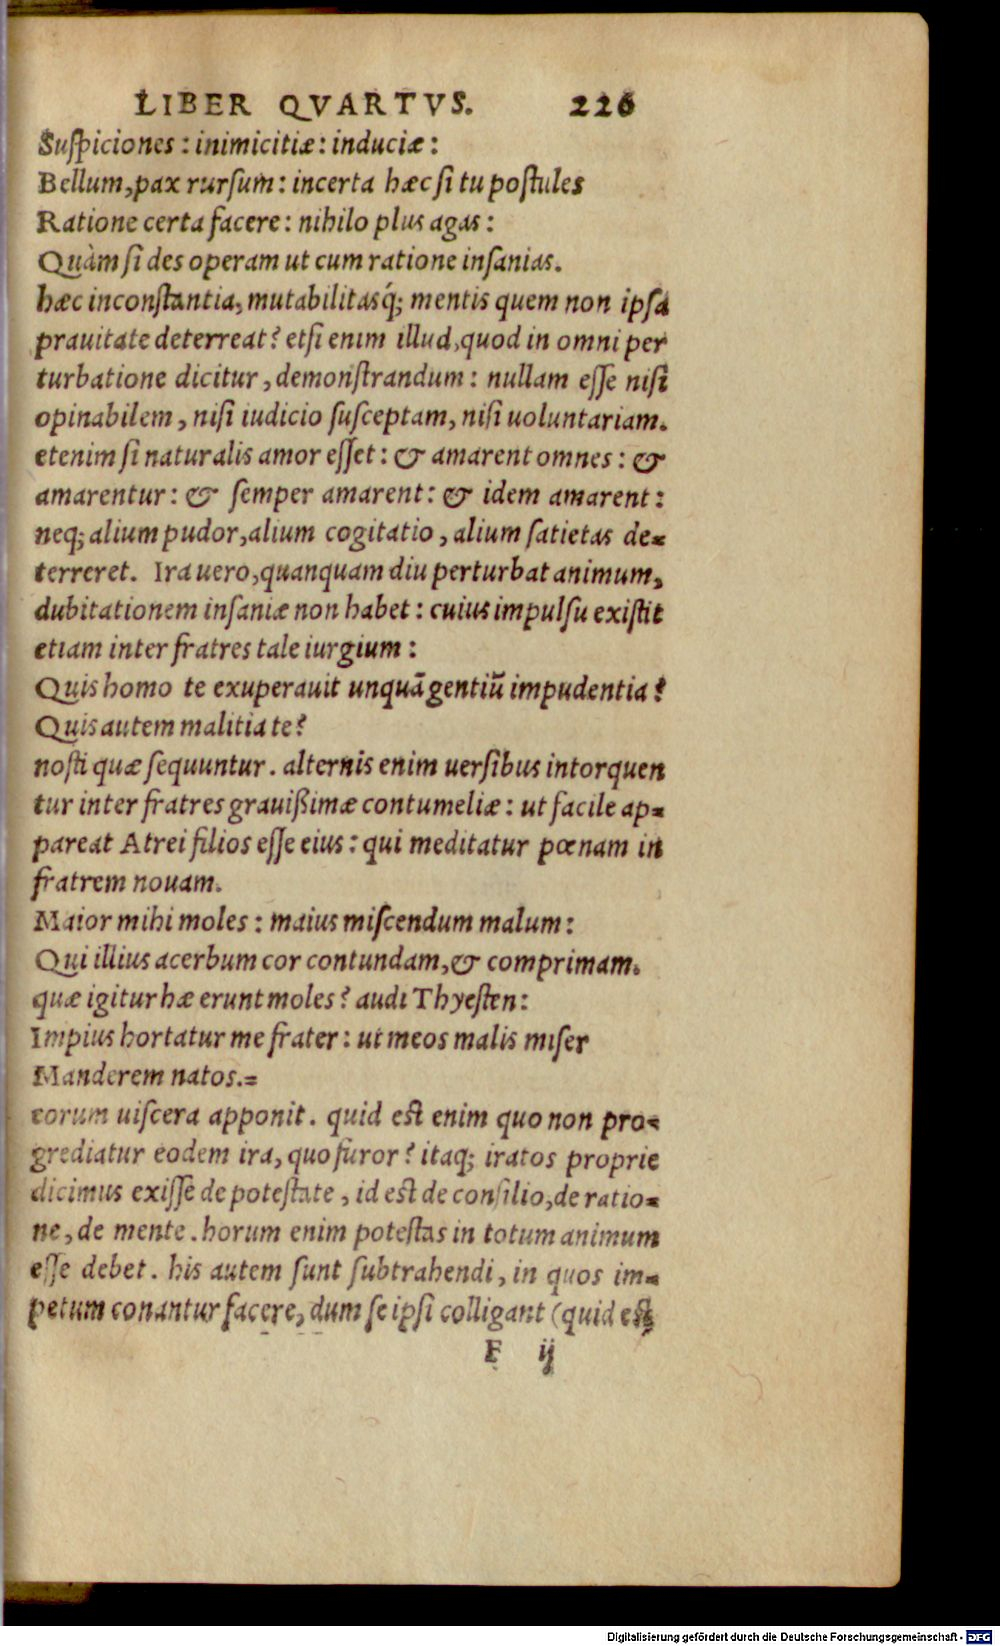 LIBER QVARTVS. 226
Suſpiciones: inimicitiæ: induciæ:
Bellum, pax rurſum: incerta hæc ſi tu poſtules
Ratione certa facere: nihilo plus agas:
Quàm ſi des operam ut cum ratione inſanias.
hæc inconſtantia, mutabilitasq́; mentis quem non ipſa
prauitate deterreat? etſi enim illud, quod in omni per
turbatione dicitur, demonſtrandum: nullam eſſe niſi
opinabilem, niſi iudicio ſuſceptam, niſi uoluntariam.
etenim ſi naturalis amor eſſet: & amarent omnes: &
amarentur: & ſemper amarent: & idem amarent:
neq; alium pudor, alium cogitatio, alium ſatietas de=
terreret. Ira uero, quanquam diu perturbat animum,
dubitationem inſaniæ non habet: cuius impulſu exiſtit
etiam inter fratres tale iurgium:
Quis homo te exuperauit unquā gentiū impudentia?
Quis autem malitia te?
noſti quæ ſequuntur. alternis enim uerſibus intorquen
tur inter fratres grauißimæ contumeliæ: ut facile ap=
pareat Atrei filios eſſe eius: qui meditatur pœnam in
fratrem nouam.
Maior mihi moles: maius miſcendum malum:
Qui illius acerbum cor contundam, & comprimam.
quæ igitur hæ erunt moles? audi Thyeſten:
Impius hortatur me frater: ut meos malis miſer
Manderem natos.=
eorum uiſcera apponit. quid eſt enim quo non pro=
grediatur eodem ira, quo furor? itaq; iratos proprie
dicimus exiſſe de poteſtate, id eſt de conſilio, de ratio=
ne, de mente. horum enim poteſtas in totum animum
eſſe debet. his autem ſunt ſubtrahendi, in quos im=
petum conantur facere, dum ſe ipſi colligant (quid eſt
F ij
Digitalisierung gefördert durch die Deutsche Forschungsgemeinschaft - DFG